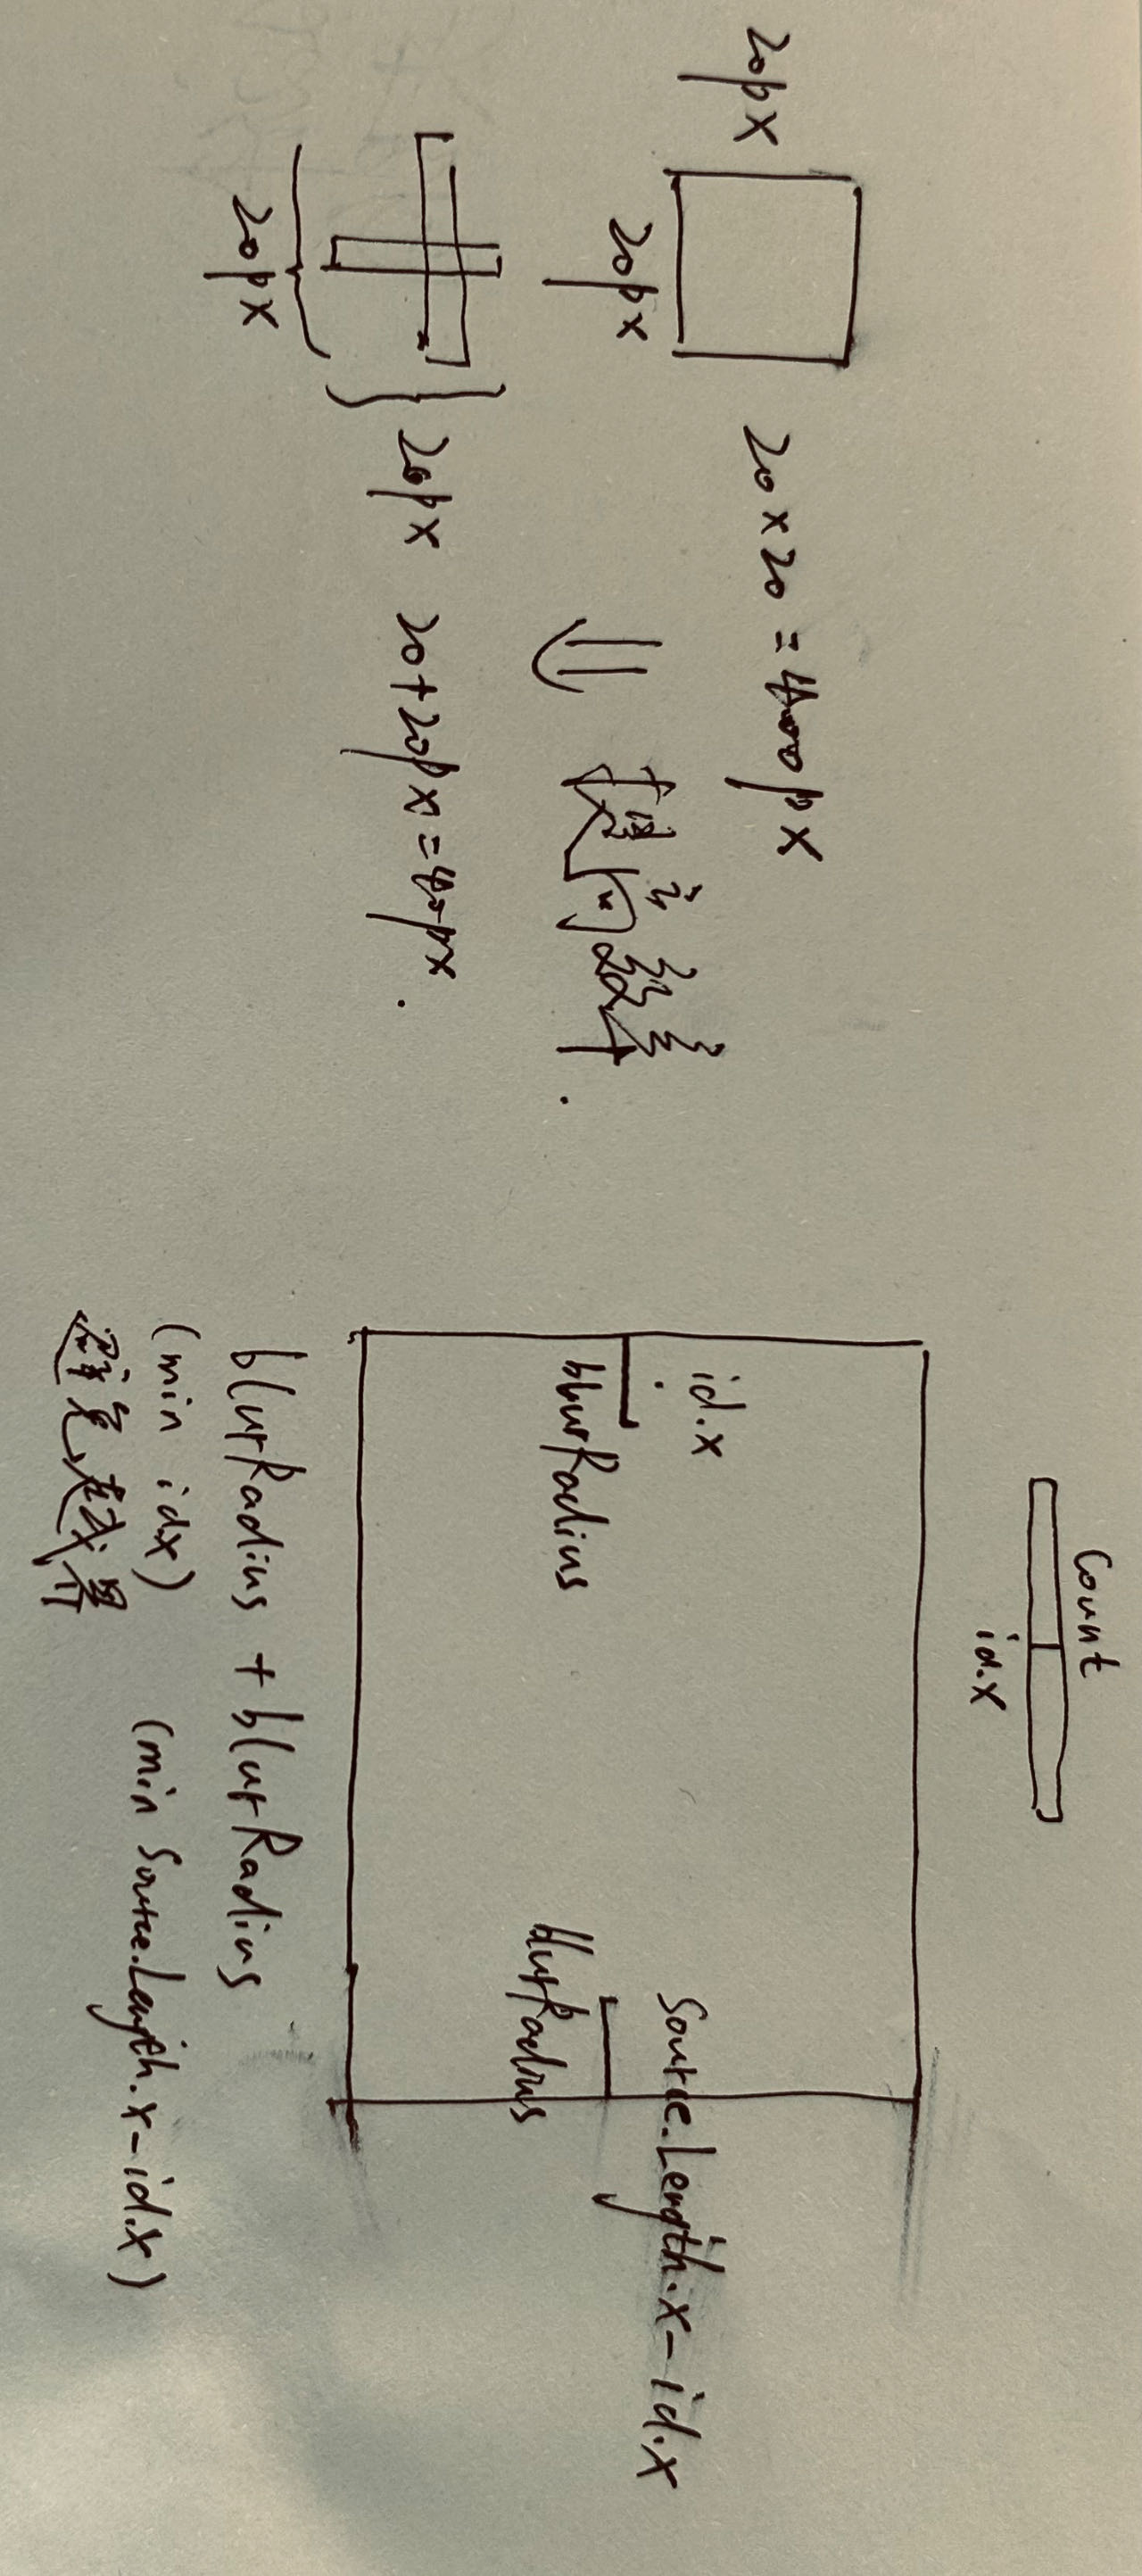 20px
20px
20 x 20 = 400px
提高效率.
20px
20px
20+20px=40px.
Count
id.x
id.x
blurRadius
Source.Length.x-id.x
blurRadius
blurRadius + blurRadius
(min idx)
(min Source.Length.x-id.x)
避免越界